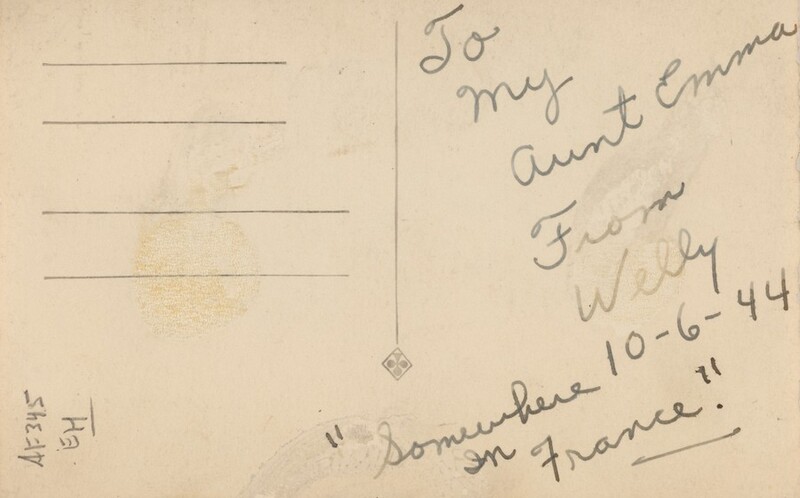 To
My
Aunt Emma
From
Welly
10-6-44
"Somewhere
in France".
AF345
EH